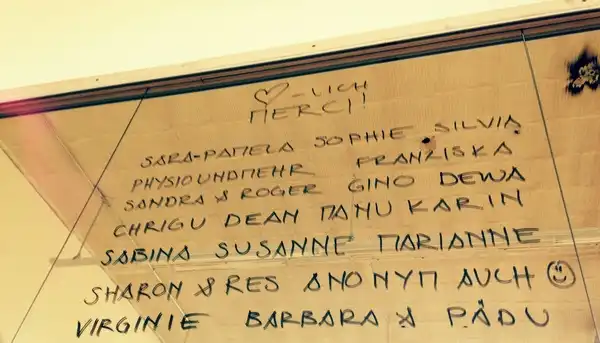 ♡-LICH
MERCI!
SARA-PAMELA SOPHIE SILVIA
PHYSIOUNDMEHR FRANZISKA
SANDRA & ROGER GINO DEWA
CHRIGU DEAN MANU KARIN
SABINA SUSANNE MARIANNE
SHARON & RES ANONYM AUCH ☺
VIRGINIE BARBARA & PÄDU